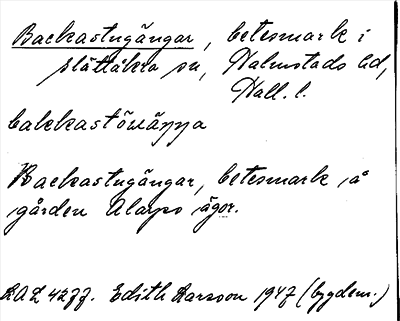 Backastugängar, betesmark i
Slättåkra sn, Halmstads hd,
Hall. l.
bakkastöuäŋŋa
Backastugängar, betesmark å
gården Alarps ägor.
LAL 4277. Edith Larsson 1947 (bygdem.)